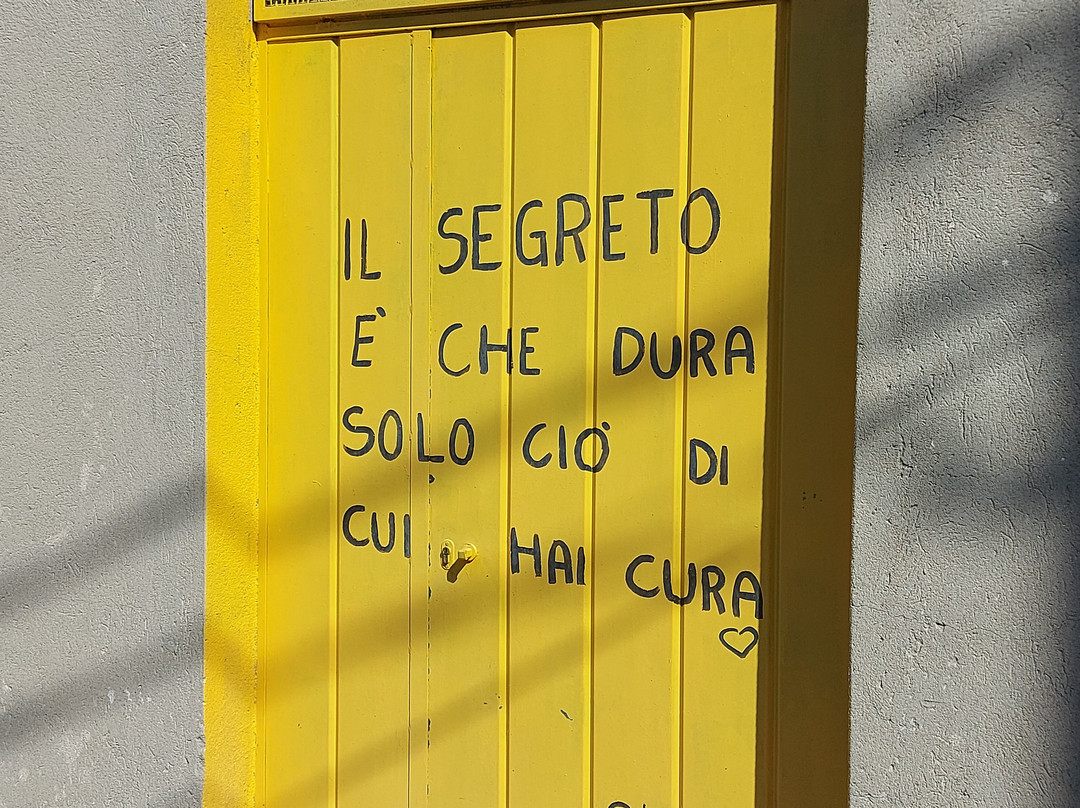 IL SEGRETO
E' CHE DURA
SOLO CIO' DI
CUI HAI CURA